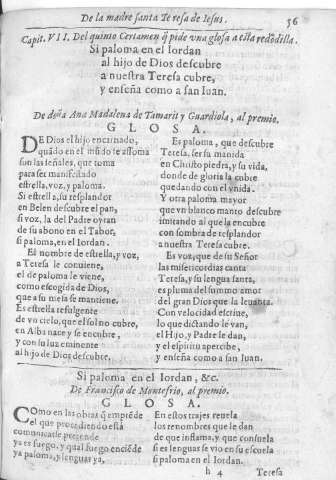 De la madre santa Teresa de Iesus. 56
Capit. VII. Del quinto Certamen q̃ pide vna glosa a esta redõdilla.
Si paloma en el Iordan
al hijo de Dios descubre
a nuestra Teresa cubre,
y enseña como a san Iuan.
De doña Ana Madalena de Tamarit y Guardiola, al premio.
GLOSA.
DE Dios el hijo encarnado,
quãdo en el mũdo se assoma
son las señales, que toma
para ser manifestado
estrella, voz, y paloma.
Si estrella, su resplandor
en Belen descubre el pan,
si voz, la del Padre oyran
de su abono en el Tabor,
si paloma, en el Iordan.
El nombre de estrella, y voz,
a Teresa le conuiene,
el de paloma le viene,
como escogida de Dios,
que a su mesa se mantiene.
Es estrella refulgente
de vn cielo, que el sol no cubre,
en Alba nace y se encubre,
y con su luz eminente
al hijo de Dios descubre.
Es paloma, que descubre
Teresa, ser su manida
en Christo piedra, y su vida,
donde de gloria la cubre
quedando con el vnida.
Y otra paloma mayor
que vn blanco manto descubre
imitando al que la encubre
con sombra de resplandor
a nuestra Teresa cubre.
Es voz, que de su Señor
las misericordias canta
Teresa, y su lengua santa,
es pluma del summo amor
del gran Dios que la leuanta.
Con velocidad escriue,
lo que dictando le van,
el Hijo, y Padre le dan,
y el espiritu apercibe,
y enseña como a san Iuan.
Si paloma en el Iordan, &c.
De Francisco de Montesrio, al premio.
GLOSA.
COmo en las obras q̃ emprẽde
el que procediendo està
comunicarse pretende
ya es fuego, y qual fuego enciẽde
ya paloma, y lenguas ya,
En estos trajes reuela
los renombres que le dan
de que inflama, y que consuela
si es lenguas se vio en su escuela
si paloma en el Iordan.
h 4 Teresa